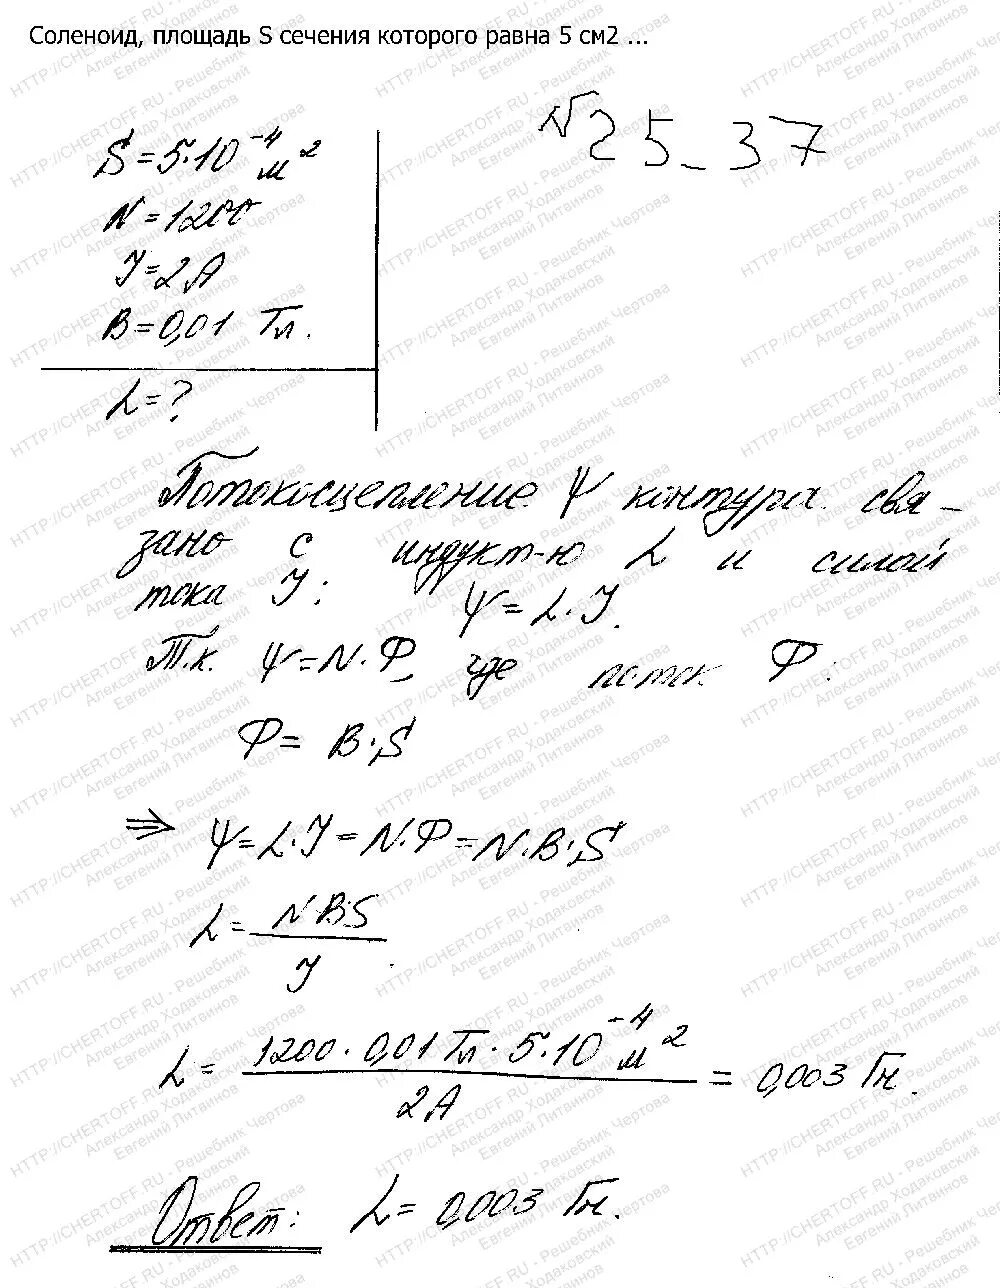 Соленоид, площадь S сечения которого равна 5 см2 ...
№25_37
S=5·10⁻⁴ м²
N=1200
I=2А
B=0,01 Тл.
L=?
Потокосцепление Ψ контура свя-
зано с индукт-ю L и силой
тока I: Ψ=L·I.
Т.к. Ψ=N·Ф, где поток Ф:
Ф= B·S
⇒ Ψ=L·I=N·Ф=N·B·S
L= NBS / I.
L= 1200·0,01Тл·5·10⁻⁴м² / 2А = 0,003 Гн.
Ответ: L=0,003 Гн.
HTTP://CHERTOFF.RU - Решебник Чертова
Александр Ходаковский
Евгений Литвинов